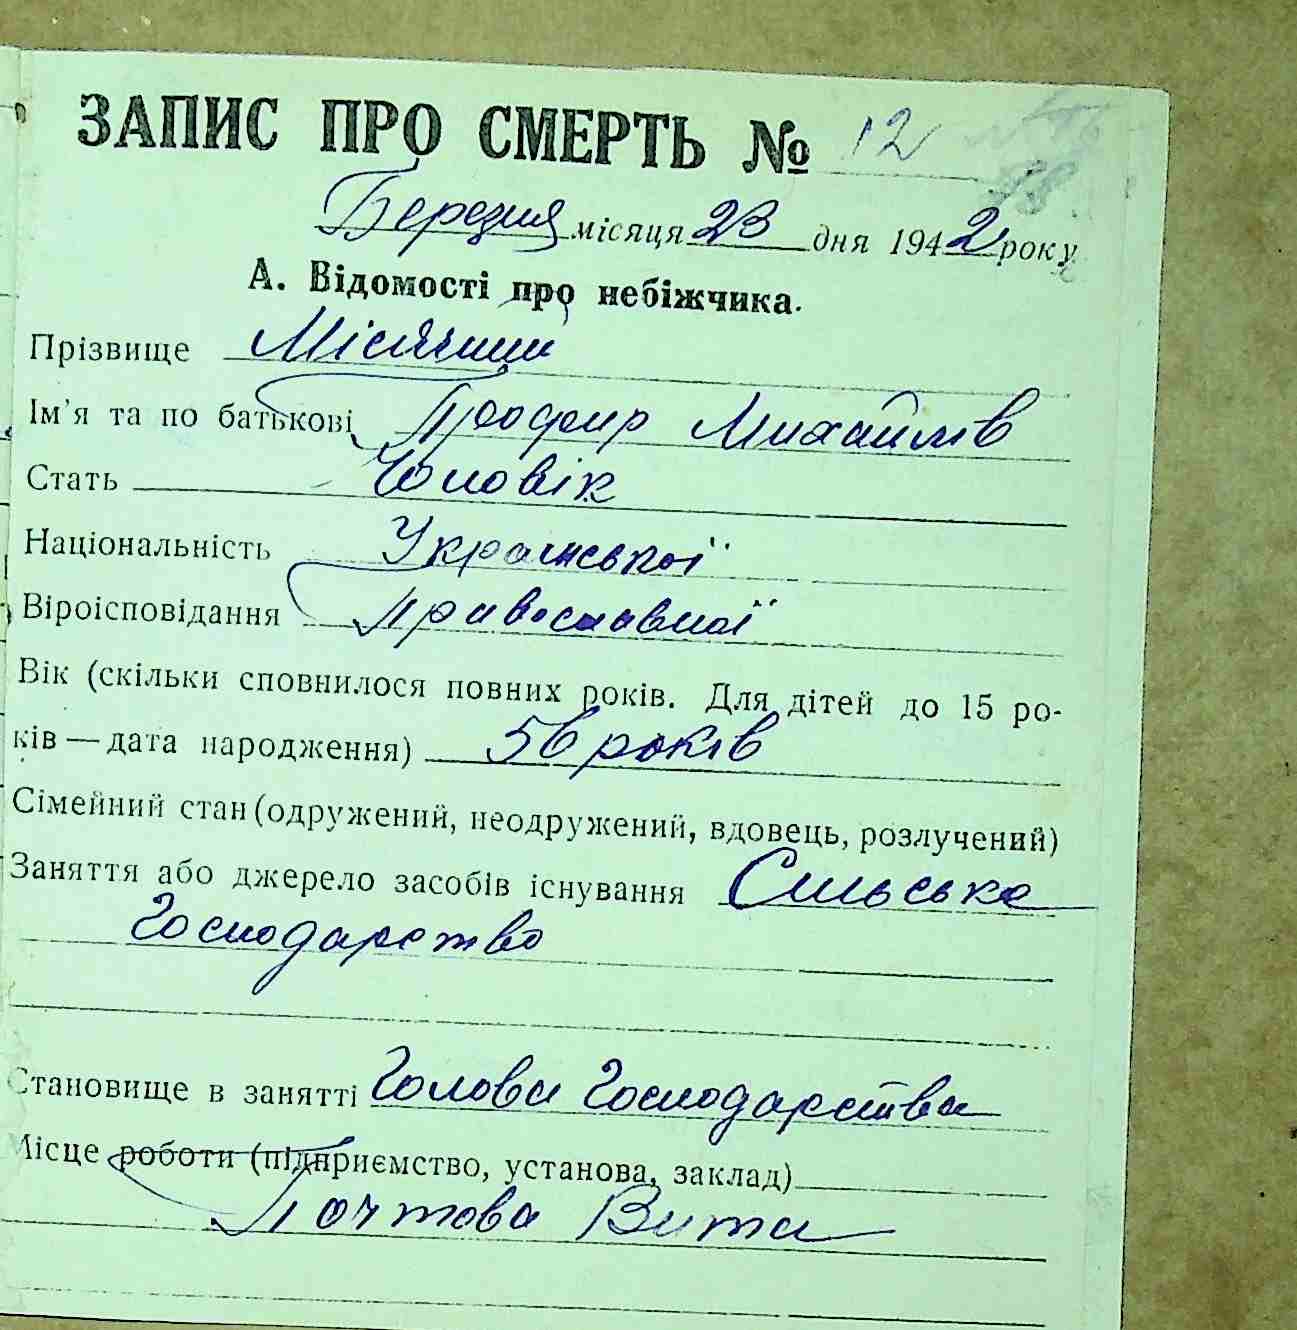 ЗАПИС ПРО СМЕРТЬ № 12
Березня місяця 23 дня 1942 року
А. Відомості про небіжчика.
Прізвище
Ім'я та по батькові Михайлів
Стать Чоловік
Національність Української
Віроісповідання Православної
Вік (скільки сповнилося повних років. Для дітей до 15 ро-
ків — дата народження) 56 років
Сімейний стан (одружений, неодружений, вдовець, розлучений)
Заняття або джерело засобів існування Сильське
Господарство
Становище в занятті Голова Господарства
Місце роботи (підприємство, установа, заклад)
Почтова Вита